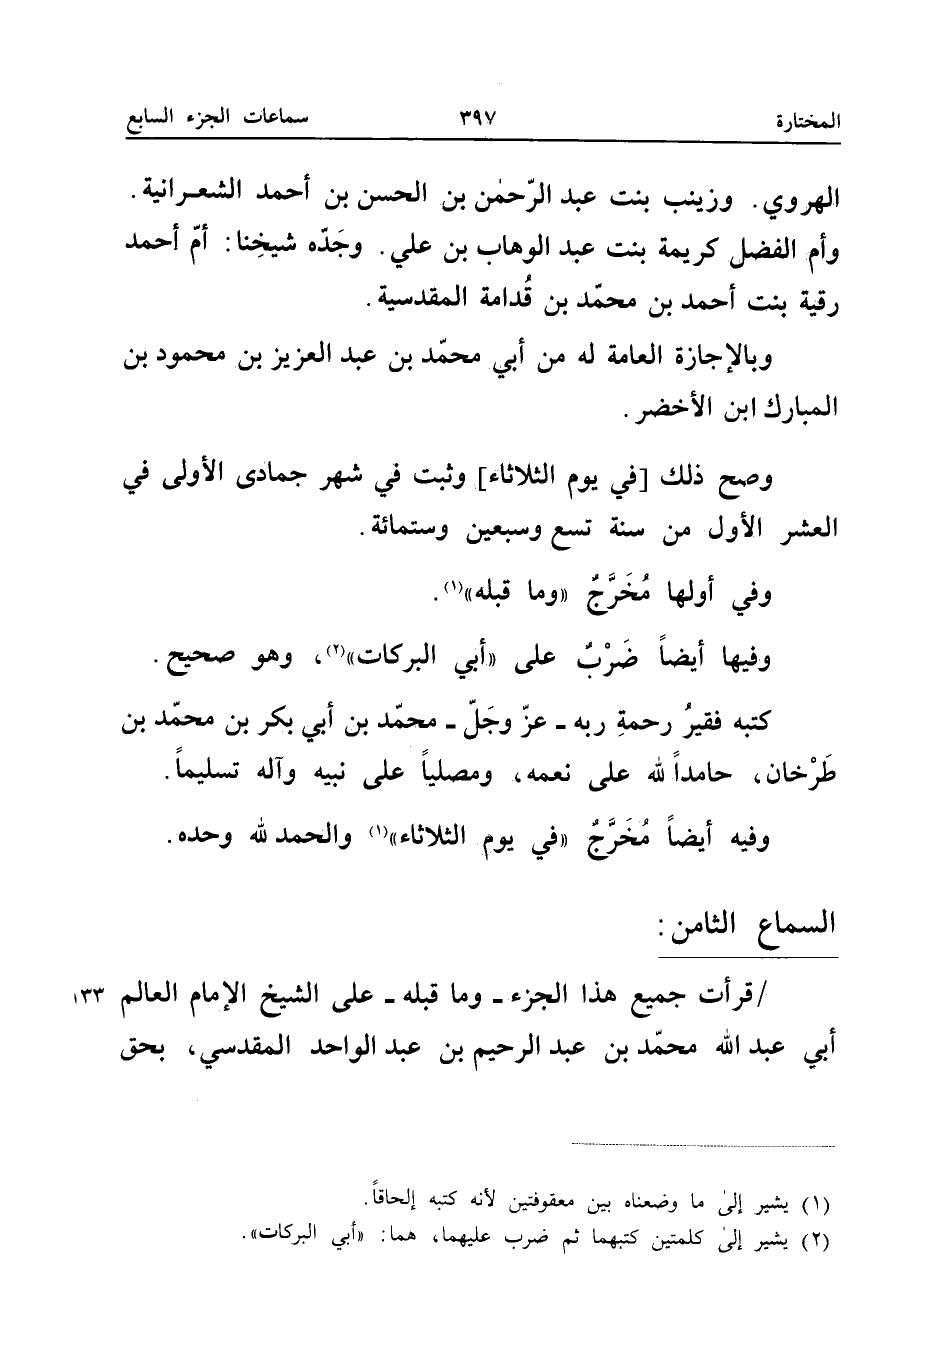 المختارة ٣٩٧ سماعات الجزء السابع
الهروي. وزينب بنت عبد الرّحمٰن بن الحسن بن أحمد الشعرانية.
وأم الفضل كريمة بنت عبد الوهاب بن علي. وجَدّه شيخِنا: أمّ أحمد
رقية بنت أحمد بن محمّد بن قُدامة المقدسية.
وبالإجازة العامة له من أبي محمّد بن عبد العزيز بن محمود بن
المبارك ابن الأخضر.
وصح ذلك [في يوم الثلاثاء] وثبت في شهر جمادى الأولى في
العشر الأول من سنة تسع وسبعين وستمائة.
وفي أولها مُخَرَّجٌ «وما قبله»(١).
وفيها أيضاً ضَرْبٌ على «أبي البركات»(٢)، وهو صحيح.
كتبه فقيرُ رحمةِ ربه ـ عزّ وجَلّ ـ محمّد بن أبي بكر بن محمّد بن
طَرْخان، حامداً لله على نعمه، ومصلياً على نبيه وآله تسليماً.
وفيه أيضاً مُخَرَّجٌ «في يوم الثلاثاء»(١) والحمد لله وحده.
السماع الثامن:
/قرأت جميع هذا الجزء ـ وما قبله ـ على الشيخ الإمام العالم ١٣٣
أبي عبد الله محمّد بن عبد الرحيم بن عبد الواحد المقدسي، بحق
(١) يشير إلىٰ ما وضعناه بين معقوفتين لأنه كتبه إلحاقاً.
(٢) يشير إلىٰ كلمتين كتبهما ثم ضرب عليهما، هما: «أبي البركات».